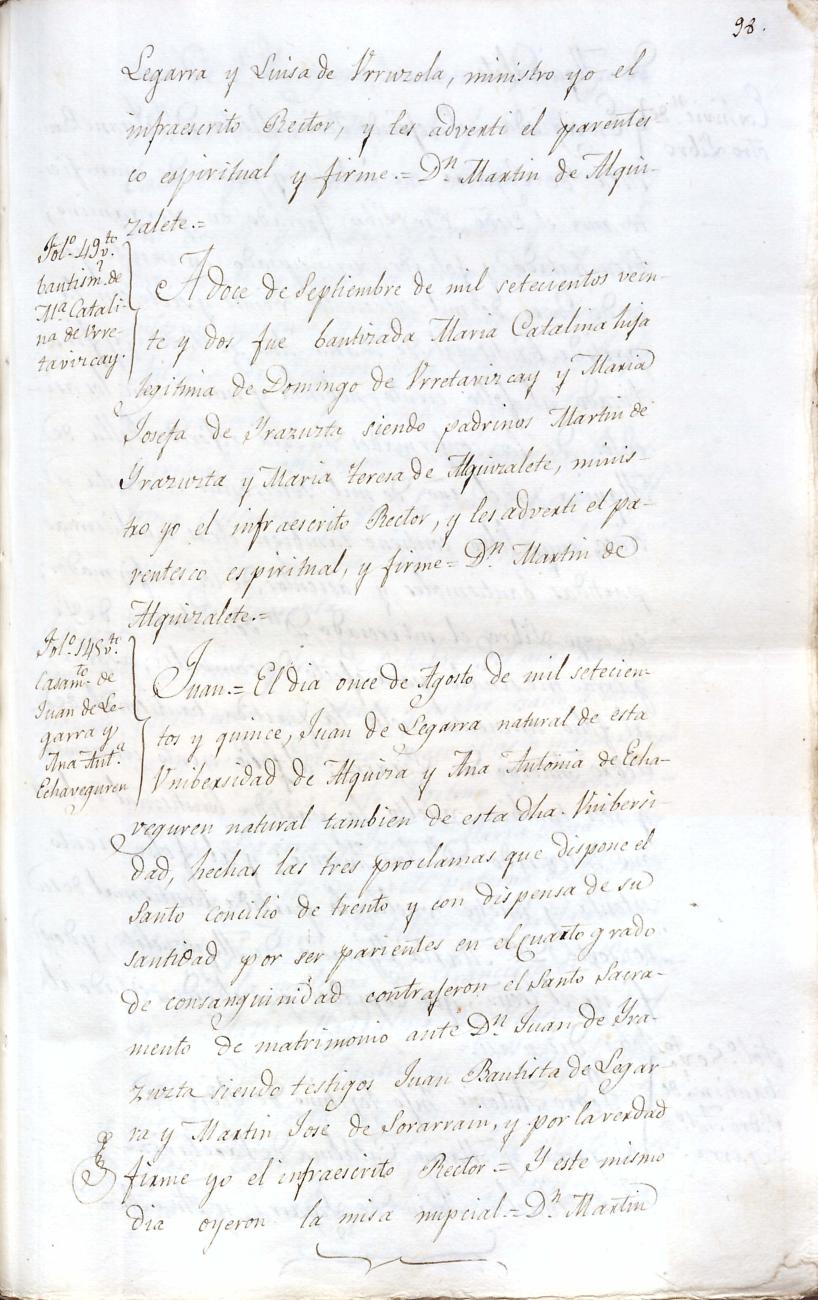 98.
Legarra y Luisa de Vrruzola, ministro yo el
infraescrito Rector, y les adverti el parentes
co espiritual y firme.= Dn Martin de Alqui-
zalete.=
Folo. 49vto.
bautism. de
Ma. Catali-
na de Vrre-
tavizcay.
A doce de Septiembre de mil setecientos vein-
te y dos fue bautizada Maria Catalina hija
legitima de Domingo de Vrretavizcay y Maria
Josefa de Yrazuzta siendo padrinos Martin de
Yrazuzta y Maria Teresa de Alquizalete, minis-
tro yo el infraescrito Rector, y les adverti el pa-
rentesco espiritual, y firme= Dn Martin de
Alquizalete.=
Folo. 148vto.
Casamto. de
Juan de Le-
garra y
Ana Anta.
Echaveguren
Juan.= El dia once de Agosto de mil setecien-
tos y quince, Juan de Legarra natural de esta
Vnibersidad de Alquiza y Ana Antonia de Echa-
veguren natural tambien de esta dha. Vnibersi-
dad, hechas las tres proclamas que dispone el
Santo Concilio de trento y con dispensa de su
santidad por ser parientes en el cuarto grado
de consanguinidad contrajeron el Santo Sacra-
mento de matrimonio ante Dn Juan de Yra-
zuzta siendo testigos Juan Bautista de Legar
ra y Martin Jose de Sorarrain, y por la verdad
firme yo el infraescrito Rector= Y este mismo
dia oyeron la misa nupcial.= Dn Martin